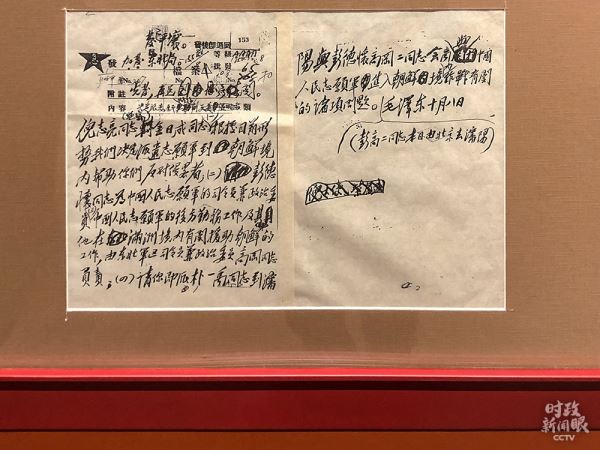 153
倪志亮同志转金日成同志：根据目前形
势我们决定派遣志愿军到朝鲜境
内帮助你们反对侵略者；(二)彭德
怀同志为中国人民志愿军的司令员兼政治委
员；(三)中国人民志愿军的后方勤务工作及其
他在满洲境内有关援助朝鲜的
工作，由东北军区司令员兼政治委员高岗同志
负责；(四)请你即派朴一禹同志到沈
阳与彭德怀高岗二同志会商与中国
人民志愿军进入朝鲜境作战有关
的诸项问题。毛泽东十月八日
(彭高二同志本日由北京去沈阳)
时政
新闻眼
CCTV